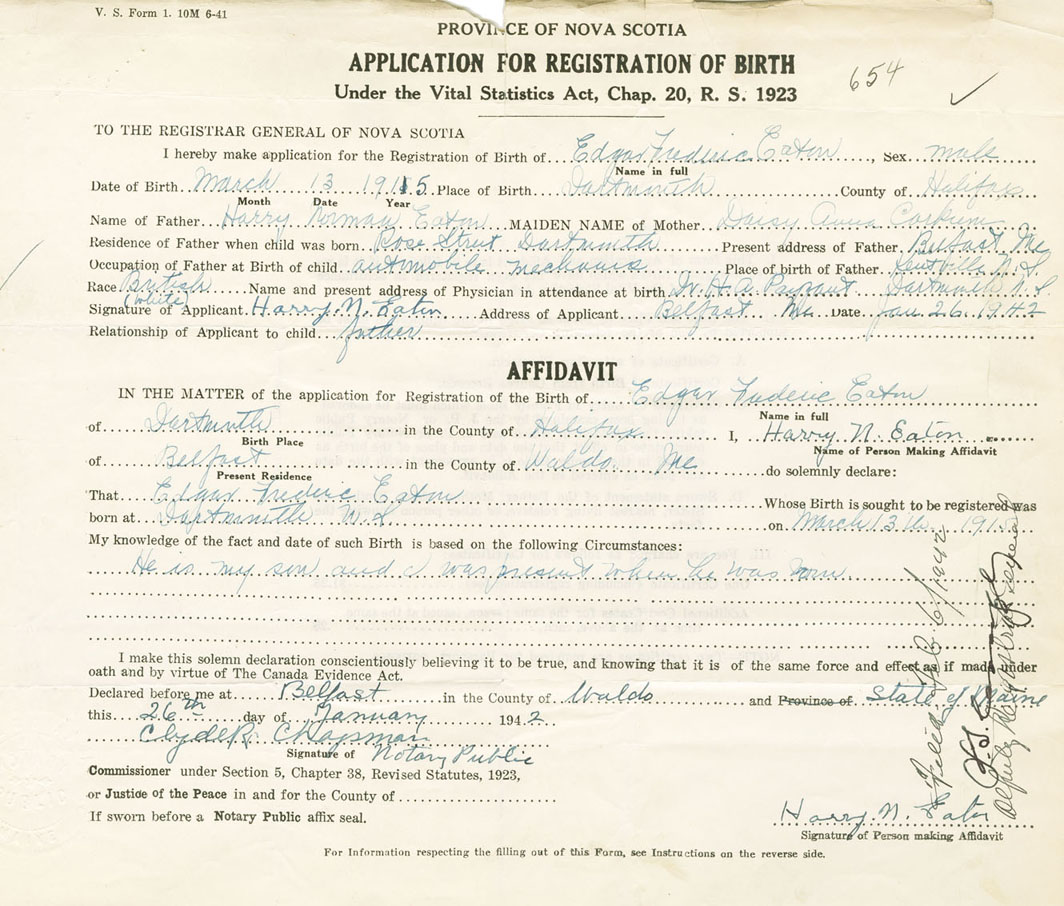 V. S. Form 1. 10M 6-41
PROVINCE OF NOVA SCOTIA
APPLICATION FOR REGISTRATION OF BIRTH
Under the Vital Statistics Act, Chap. 20, R. S. 1923
654 ✓
TO THE REGISTRAR GENERAL OF NOVA SCOTIA
I hereby make application for the Registration of Birth of Edgar Frederic Eaton, Sex male
Name in full
Date of Birth March 13 1915 Place of Birth Dartmouth County of Halifax
Month Date Year
Name of Father Harry Norman Eaton MAIDEN NAME of Mother Daisy Anna Corkum
Residence of Father when child was born Rose Street Dartmouth Present address of Father Belfast Me
Occupation of Father at Birth of child automobile mechanic Place of birth of Father Kentville N. S.
Race British Name and present address of Physician in attendance at birth Dr. H. A. Payzant Dartmouth N. S.
(White)
Signature of Applicant Harry N. Eaton Address of Applicant Belfast Me Date Jan 26, 1942
Relationship of Applicant to child father
AFFIDAVIT
IN THE MATTER of the application for Registration of the Birth of Edgar Frederic Eaton
Name in full
of Dartmouth in the County of Halifax I, Harry N. Eaton
Birth Place Name of Person Making Affidavit
of Belfast in the County of Waldo Me do solemnly declare:
Present Residence
That Edgar Frederic Eaton Whose Birth is sought to be registered was
born at Dartmouth N. S. on March 13th 1915
My knowledge of the fact and date of such Birth is based on the following Circumstances:
He is my son and I was present when he was born.
I make this solemn declaration conscientiously believing it to be true, and knowing that it is of the same force and effect as if made under
oath and by virtue of The Canada Evidence Act.
Declared before me at Belfast in the County of Waldo and Province of State of Maine
this 26th day of January 1942
Clyde R. Chapman
Signature of Notary Public
Commissioner under Section 5, Chapter 38, Revised Statutes, 1923,
or Justice of the Peace in and for the County of
If sworn before a Notary Public affix seal.
Harry N. Eaton
Signature of Person making Affidavit
For Information respecting the filling out of this Form, see Instructions on the reverse side.
Filed Feb 6/1942
Deputy Registrar General